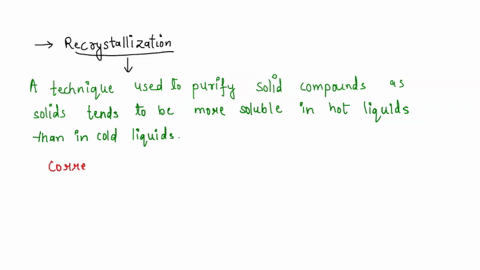 → Recrystallization
A technique used to purify solid compounds as
solids tends to be more soluble in hot liquids
than in cold liquids.
Corre